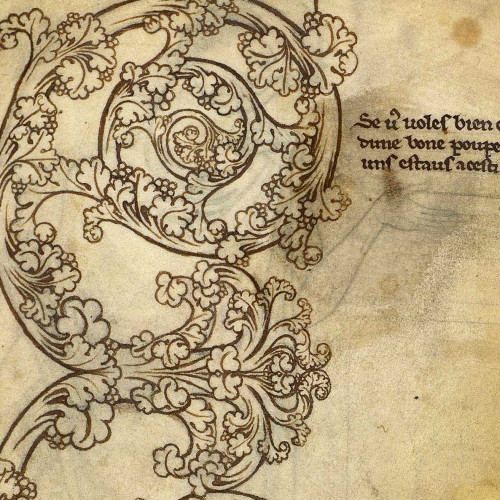 Se vͦ uoles bien o
dune bone poupe
uns estaus acesti